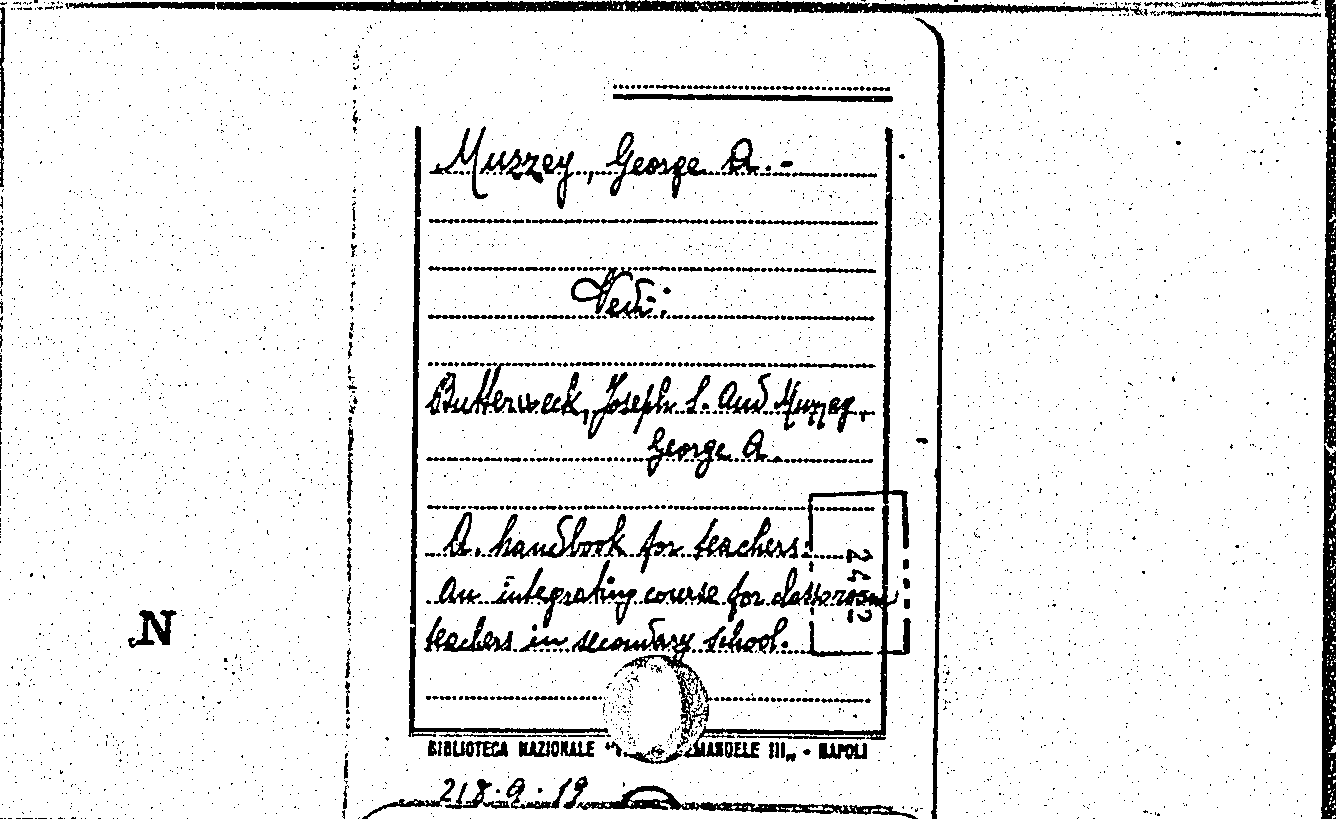 Muzzey, George A.-
Vedi:
Butterweck, Joseph S. and Muzzey,
George A.
A. handbook for teachers:
an integrating course for classroom
teachers in secondary school.
2442
N
BIBLIOTECA NAZIONALE " EMANUELE III„ - NAPOLI